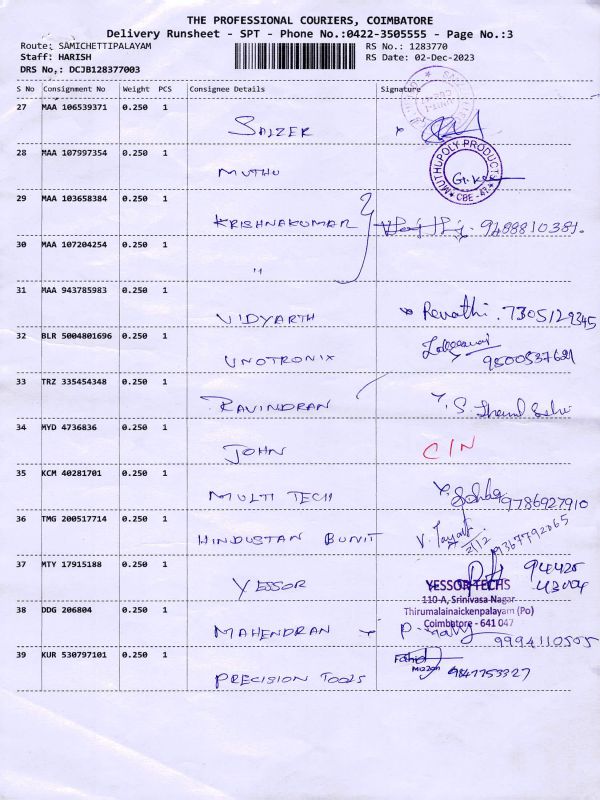 THE PROFESSIONAL COURIERS, COIMBATORE
Delivery Runsheet - SPT - Phone No.:0422-3505555 - Page No.:3
Route: SAMICHETTIPALAYAM RS No.: 1283770
Staff: HARISH RS Date: 02-Dec-2023
DRS No,: DCJB128377003
S No Consignment No Weight PCS Consignee Details Signature
27 MAA 106539371 0.250 1
SALZER
28 MAA 107997354 0.250 1
MUTHU
MUTHUPOLY PRODUCTS
CBE - 47
29 MAA 103658384 0.250 1
KRISHNAKUMAR 9488810381.
30 MAA 107204254 0.250 1
"
31 MAA 943785983 0.250 1
VIDYARTH Revathi. 7305129345
32 BLR 5004801696 0.250 1
UNOTRONIX 9500537621
33 TRZ 335454348 0.250 1
RAVINDRAN
34 MYD 4736836 0.250 1
JOHN C/N
35 KCM 40281701 0.250 1
MULTI TECH 9786927910
36 TMG 200517714 0.250 1
HINDUSTAN BUNIT 9367792065
2/12
37 MTY 17915188 0.250 1
94425
43004
YESSOR YESSOR TECHS
110-A, Srinivasa Nagar
38 DDG 206804 0.250 1 Thirumalainaickenpalayam (Po)
Coimbatore - 641 047
MAHENDRAN 9994110505
39 KUR 530797101 0.250 1
PRECISION TOOLS 9841753327